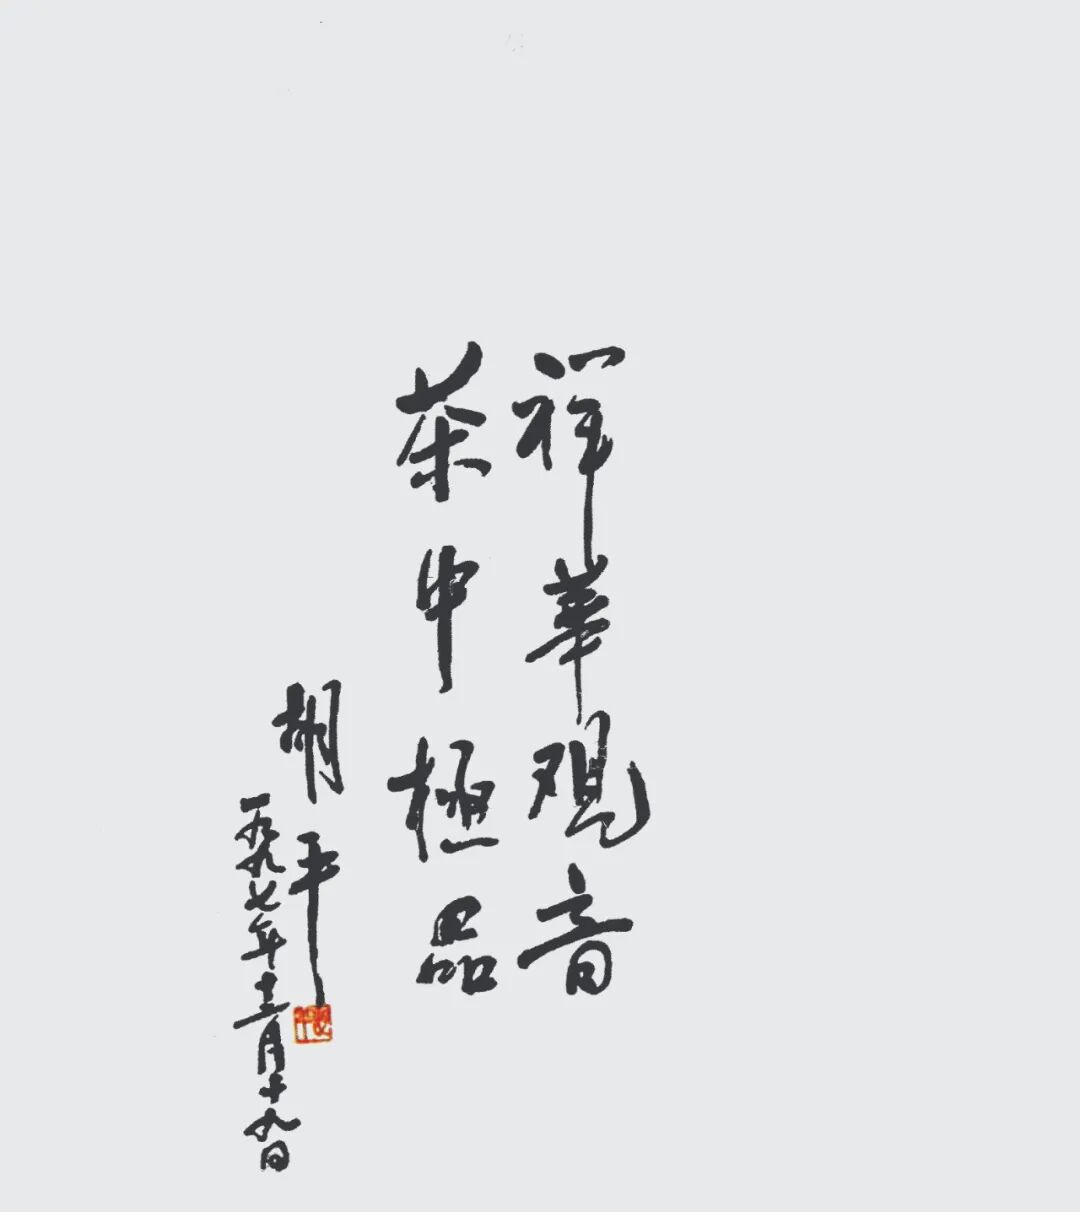 祥華观音
茶中極品
胡平
一九九七年十二月十九日